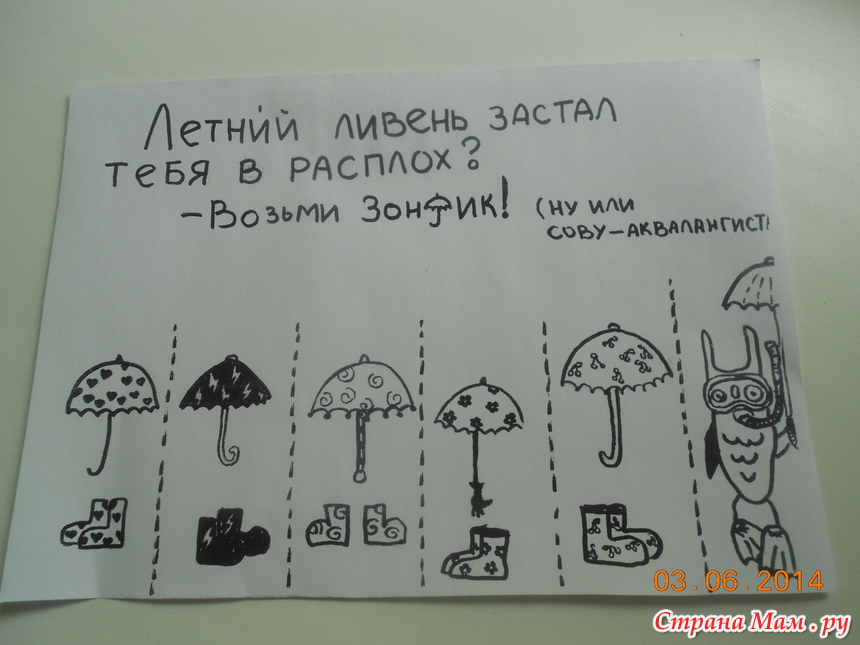 Летний ливень застал
тебя в расплох?
-Возьми Зонтик! (ну или
сову-аквалангист
03.06.2014
Страна Мам.ру